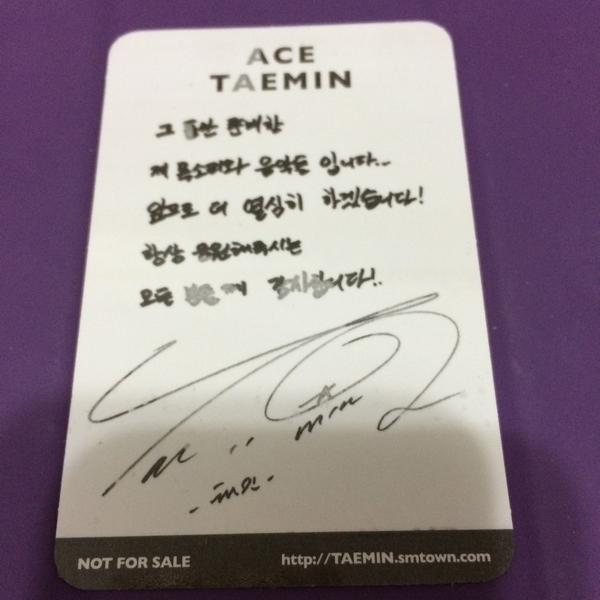 ACE
TAEMIN
그 동안 준비한
제 목소리와 음악들 입니다..
앞으로 더 열심히 하겠습니다!
항상 응원해주시는
모든 분들께 감사합니다!..
Taemin
-태민-
NOT FOR SALE
http://TAEMIN.smtown.com